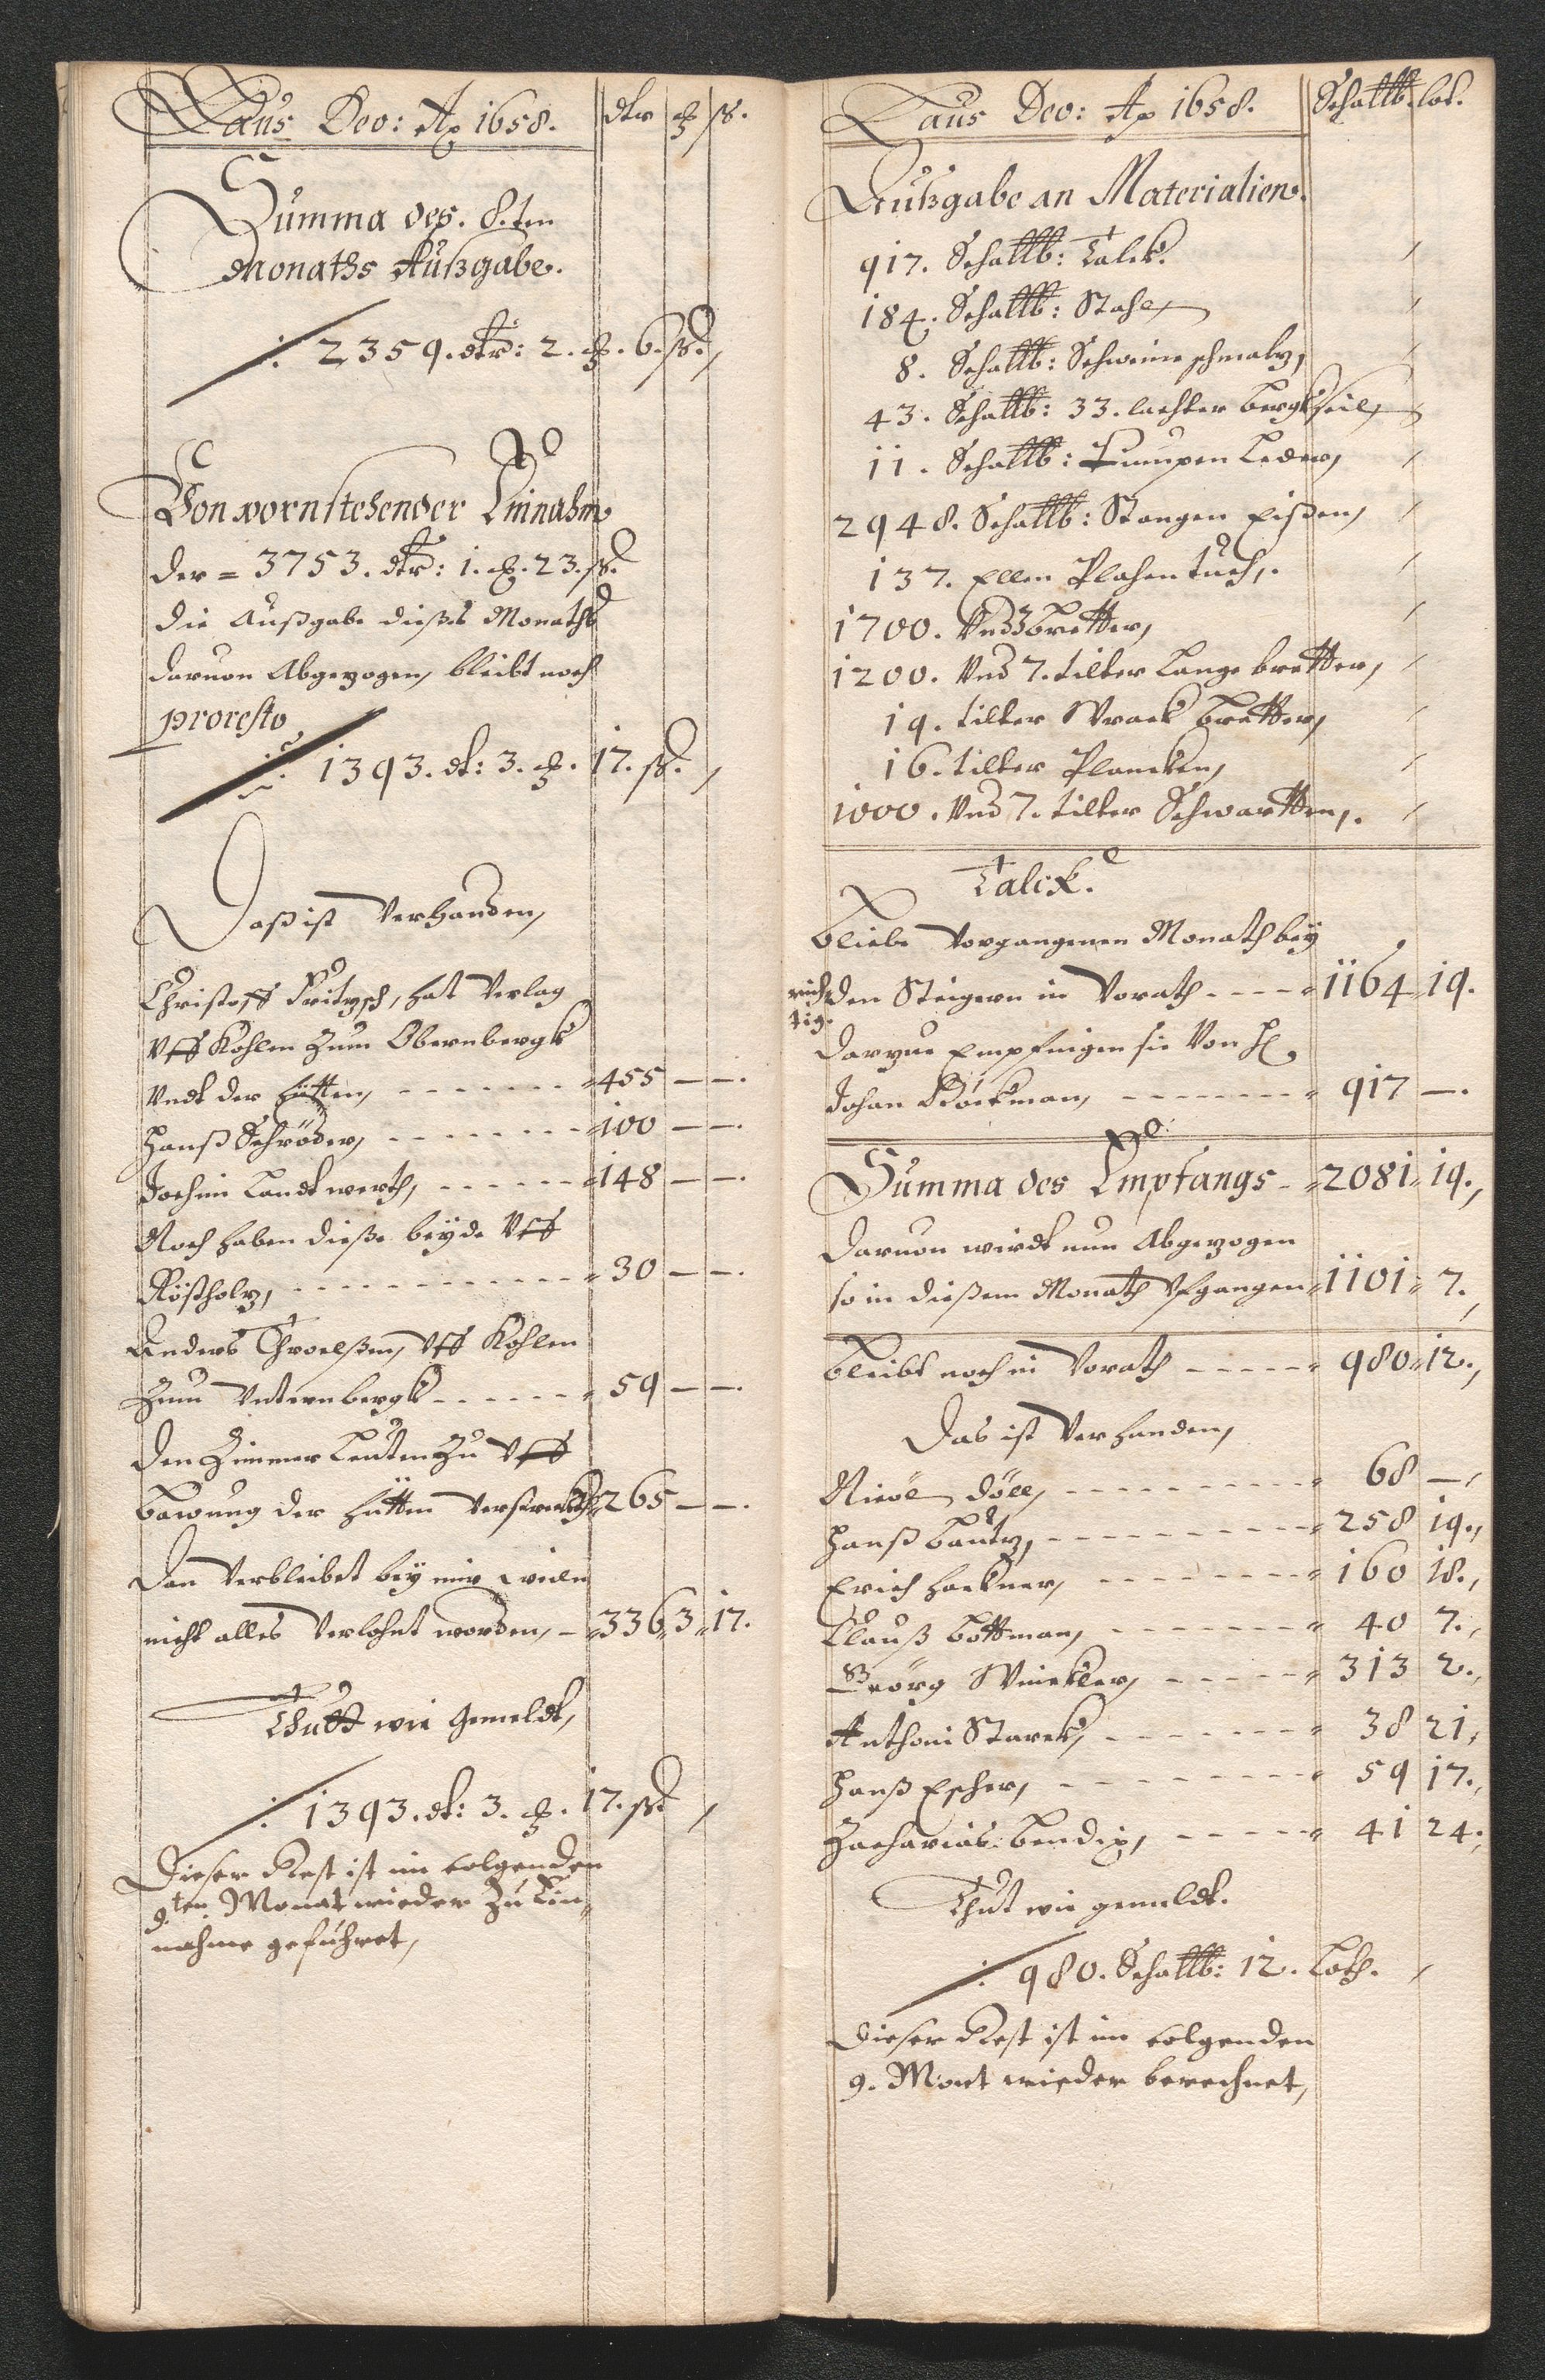 Laus Deo: Ao 1658. dlr ß.
Summa des. 8.ten
Monaths Außgabe.
2359. dlr: 2. 6. ß.
Von vornstehender Einnahm
der = 3753. dlr: 1. 23. ß.
die Außgabe dießes Monaths
daruon Abgezogen, bleibt noch
proresto
1393. dl: 3. 17. ß.
Daß ist Verhanden,
Christoff Fritzsch, hat Verlag
Vff Kohlen Zum Obernbergk
Vndt der Hütten, - - - 455 — —.
Hanß Schröder, - - - 100 — —.
Jochim Landtwerth, - - - 148 — —.
Noch haben dieße beyde Vff
Röstholz, - - - 30 — —.
Anders Throelßen, Vff Kohlen
Zum Unternbergk - - - 59 — —.
Den Zimmer Leuten Zu Vff
bawung der Hütten 265 — —.
Dan Verbleibet bey mir weiln
nicht alles Verlohnt worden, - 336 3 17.
Thutt wie Gemeldt,
1393. dl: 3. 17. ß.
Dieser Rest ist im folgenden
9.ten Monat wieder Zu Ein-
nahme geführet,
Laus Deo: Ao 1658. Schallb. lot.
Außgabe an Materialien.
917. Schallb: Talck.
184. Schallb: Stahl,
8. Schallb: Schweine schmaltz,
43. Schallb: 33. lachter bergkseil,
11. Schallb: Pumpen Leder,
2948. Schallb: Stangen Eißen,
137. Ellen Plahen tuch,.
1700. Vndt bretter,
1200. Vnd 7. tilter Lange bretter,
19. tilter Wrack bretter,
16. tilter Plancken,
1000. Vnd 7. tilter Schwartten,.
Talck.
bliebe Vorgangenen Monath bey
rich den Steigern in Vorath - - - 1164 19.
tig.
Darzue Empfingen sie Von H
Johan Böckman, - - - 917 —.
Summa des Empfangs - 2081 19.
Daruon wirdt nun Abgezogen
so in dießem Monath Vfgangen 1101 7.
bleibt noch in Vorath - - - 980 12.
Das ist Verhanden,
Nicol Döll, - - - 68 —
Hanß bautz, - - - 258 19.
Erich Hackner, - - - 160 18.
Clauß bottman, - - - 40 7.
Görg Winckler, - - - 313 2.
Anthoni Starck, - - - 38 21,
Hanß Escher, - - - 59 17.
Zacharias bendix, - - - 41 24.
Thut wie gemeldt.
980. Schallb: 12. Loth.
Dieser Rest ist im folgenden
9. Mont wieder berechnet,